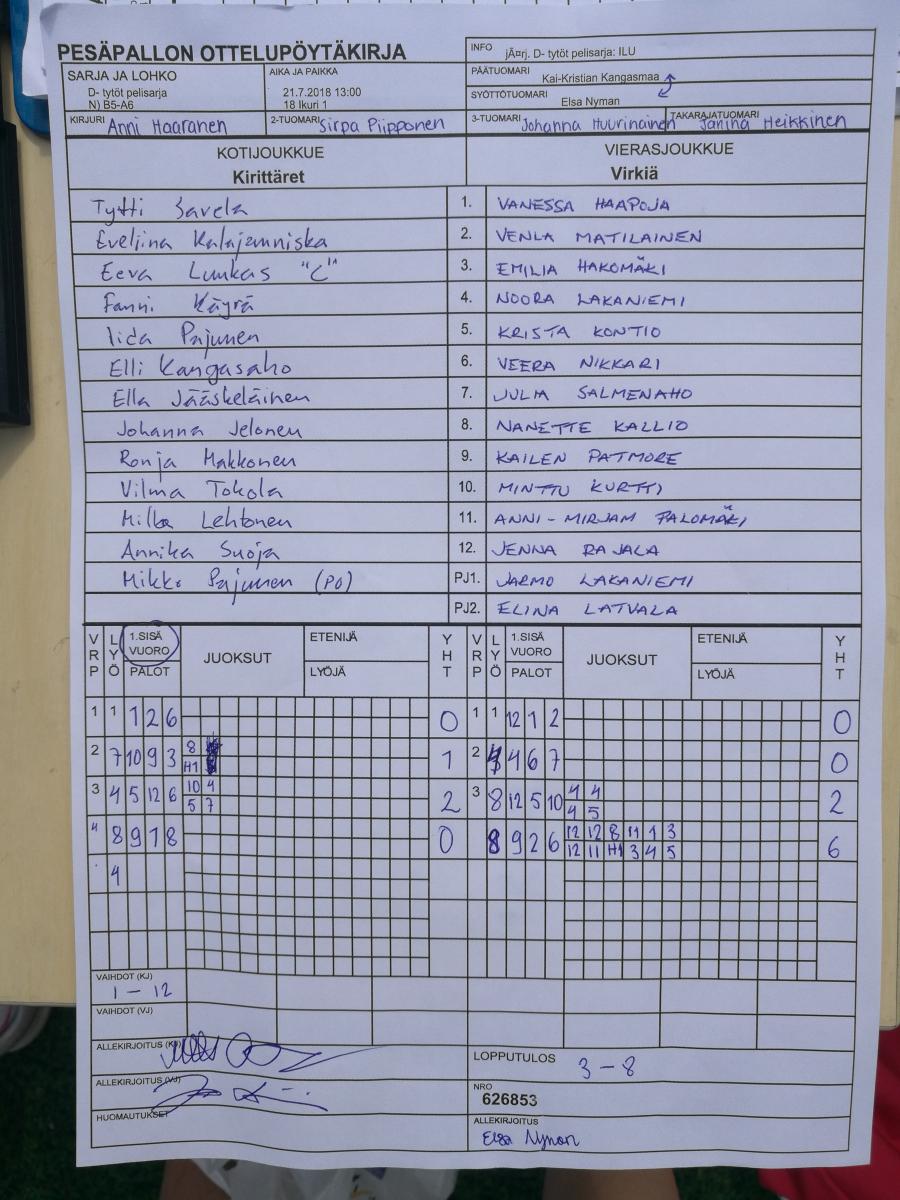 PESÄPALLON OTTELUPÖYTÄKIRJA
INFO jÃ¤rj. D- tytöt pelisarja: ILU
SARJA JA LOHKO
D- tytöt pelisarja
N) B5-A6
AIKA JA PAIKKA
21.7.2018 13:00
18 Ikuri 1
PÄÄTUOMARI Kai-Kristian Kangasmaa
SYÖTTÖTUOMARI Elsa Nyman
KIRJURI Anni Haaranen 2-TUOMARI Sirpa Piipponen 3-TUOMARI Johanna Huurinainen TAKARAJATUOMARI Janina Heikkinen
KOTIJOUKKUE VIERASJOUKKUE
Kirittäret Virkiä
Tytti Savela 1. VANESSA HAAPOJA
Eveliina 2. VENLA MATILAINEN
Eeva Luukas "C" 3. EMILIA HAKOMÄKI
Fanni Käyrä 4. NOORA LAKANIEMI
Iida Pajunen 5. KRISTA KONTIO
Elli Kangasaho 6. VEERA NIKKARI
Ella Jääskeläinen 7. JULIA SALMENAHO
Johanna Jelonen 8. NANETTE KALLIO
Ronja Makkonen 9. KAILEN PATMORE
Vilma Tokola 10. MINTTU KURTTI
Milla Lehtonen 11. ANNI-MIRJAM PALOMÄKI
Annika Suoja 12. JENNA RAJALA
Mikko Pajunen (PO) PJ1. JARMO LAKANIEMI
PJ2. ELINA LATVALA
VRP LYÖ 1.SISÄ VUORO PALOT JUOKSUT ETENIJÄ LYÖJÄ YHT VRP LYÖ 1.SISÄ VUORO PALOT JUOKSUT ETENIJÄ LYÖJÄ YHT
1 1 1 2 6 0 1 1 12 1 2 0
2 7 10 9 3 8 1 2 4 6 7 0
H1
3 4 5 12 6 10 4 2 3 8 12 5 10 4 4 2
5 7 4 5
4 8 9 1 8 0 8 9 2 6 12 12 8 11 1 3 6
12 11 H1 3 4 5
4
VAIHDOT (KJ)
1 - 12
VAIHDOT (VJ)
ALLEKIRJOITUS (KJ)
LOPPUTULOS 3 - 8
ALLEKIRJOITUS (VJ)
NRO
626853
HUOMAUTUKSET
ALLEKIRJOITUS
Elsa Nyman